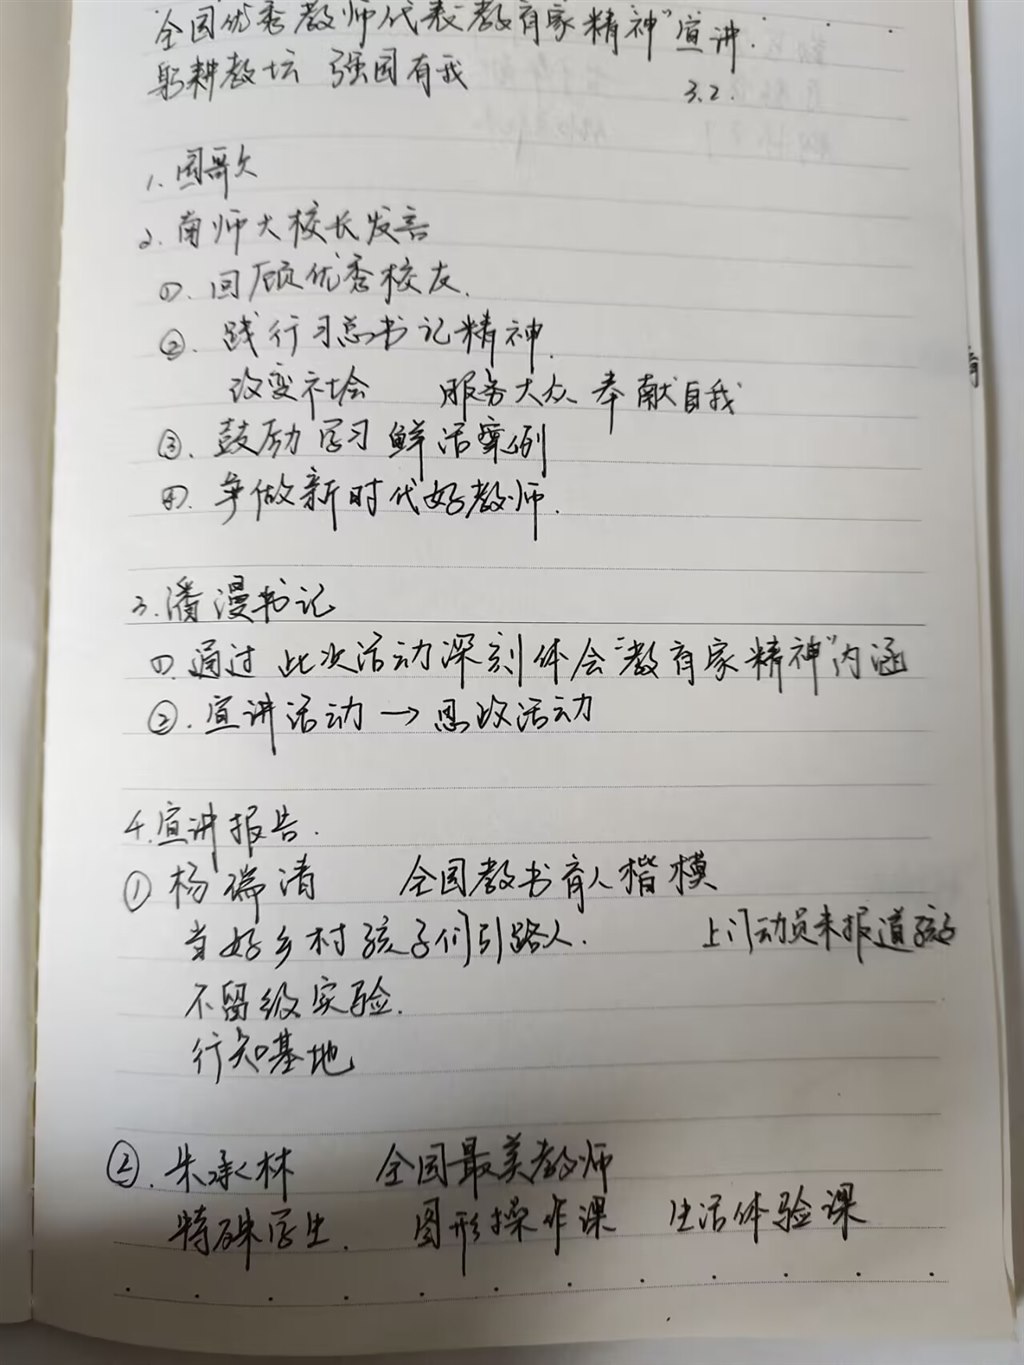 全国优秀教师代表教育家精神"宣讲.
躬耕教坛 强国有我 3.2.
1. 国歌
2. 南师大校长发言
①. 回顾优秀校友.
②. 践行习总书记精神.
改变社会 服务大众 奉献自我
③. 鼓励学习鲜活案例
④. 争做新时代好教师.
3. 潘漫书记
①. 通过此次活动深刻体会"教育家精神"内涵
②. 宣讲活动→思政活动
4. 宣讲报告.
① 杨瑞清 全国教书育人楷模
当好乡村孩子们引路人. 上门动员未报道孩子
不留级实验.
行知基地
②. 朱承林 全国最美教师
特殊学生. 图形操作课 生活体验课